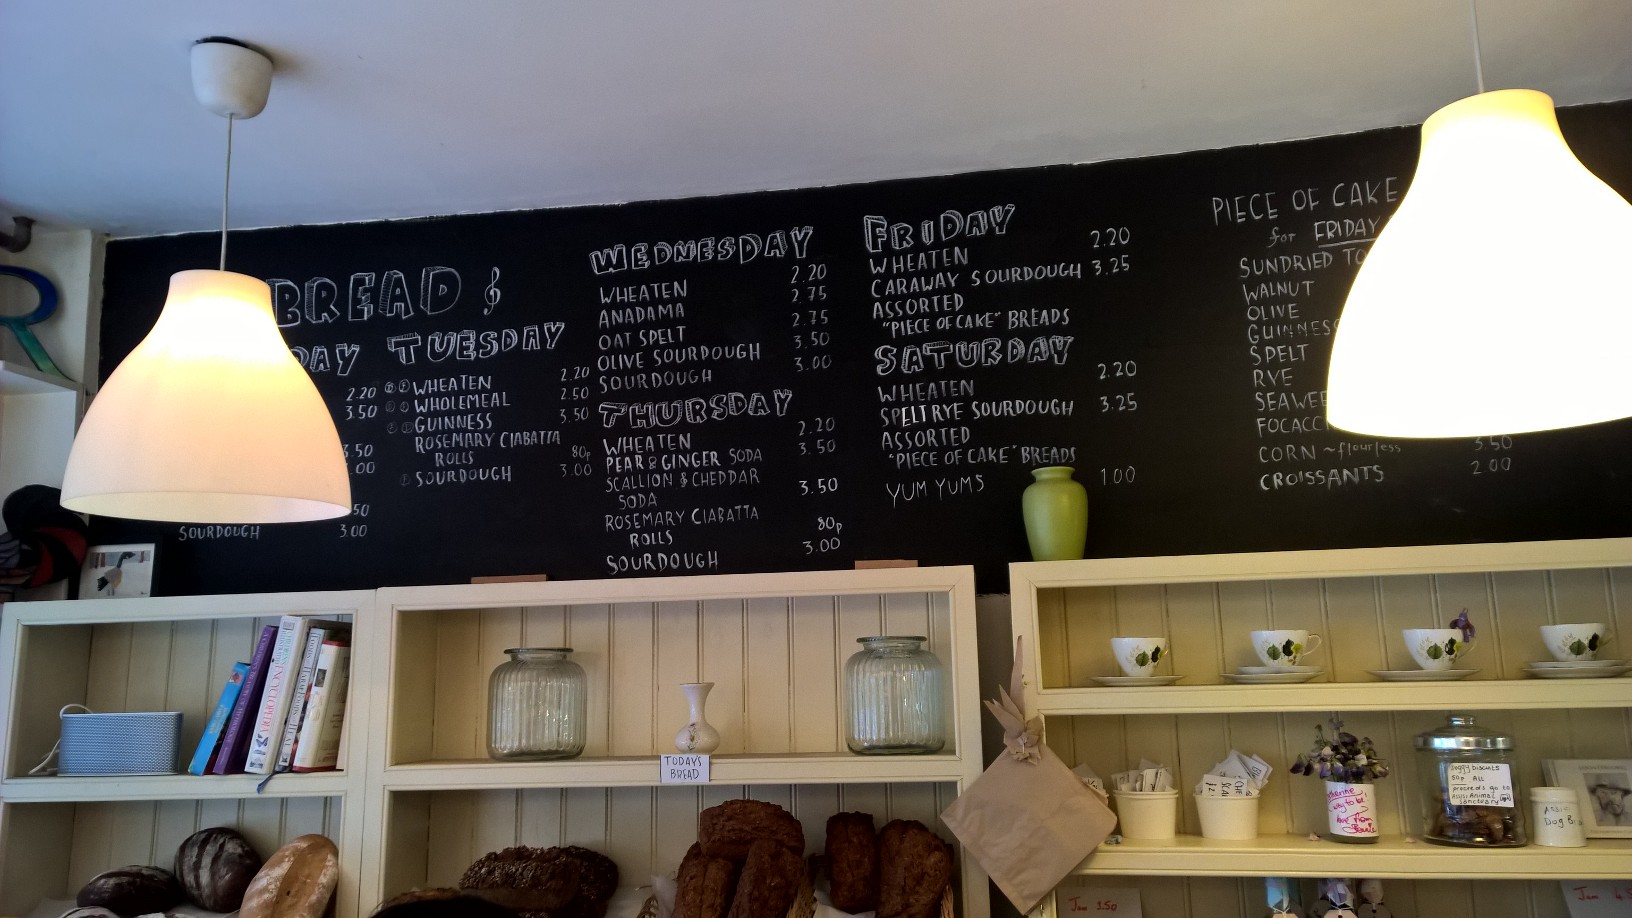 BREAD
DAY
2.20
3.50
3.50
.00
.50
SOURDOUGH 3.00
TUESDAY
WHEATEN 2.20
WHOLEMEAL 2.50
GUINNESS 3.50
ROSEMARY CIABATTA
ROLLS 80p
SOURDOUGH 3.00
WEDNESDAY
WHEATEN 2.20
ANADAMA 2.75
OAT SPELT 2.75
OLIVE SOURDOUGH 3.50
SOURDOUGH 3.00
THURSDAY
WHEATEN 2.20
PEAR & GINGER SODA 3.50
SCALLION & CHEDDAR
SODA 3.50
ROSEMARY CIABATTA
ROLLS 80p
SOURDOUGH 3.00
FRIDAY
WHEATEN 2.20
CARAWAY SOURDOUGH 3.25
ASSORTED
"PIECE OF CAKE" BREADS
SATURDAY
WHEATEN 2.20
SPELT RYE SOURDOUGH 3.25
ASSORTED
"PIECE OF CAKE" BREADS
YUM YUMS 1.00
PIECE OF CAKE
for FRIDAY
SUNDRIED TO
WALNUT
OLIVE
GUINNESS
SPELT
RYE
SEAWEE
FOCACC
CORN ~ flourless 3.50
CROISSANTS 2.00
ENCYCLOPEDIA
TODAY'S
BREAD
Doggy biscuits
50p ALL
proceeds go to
Assisi Animal
Sanctuary
ASSISI
Dog B
way to be
love from
Jam 3.50
Jam